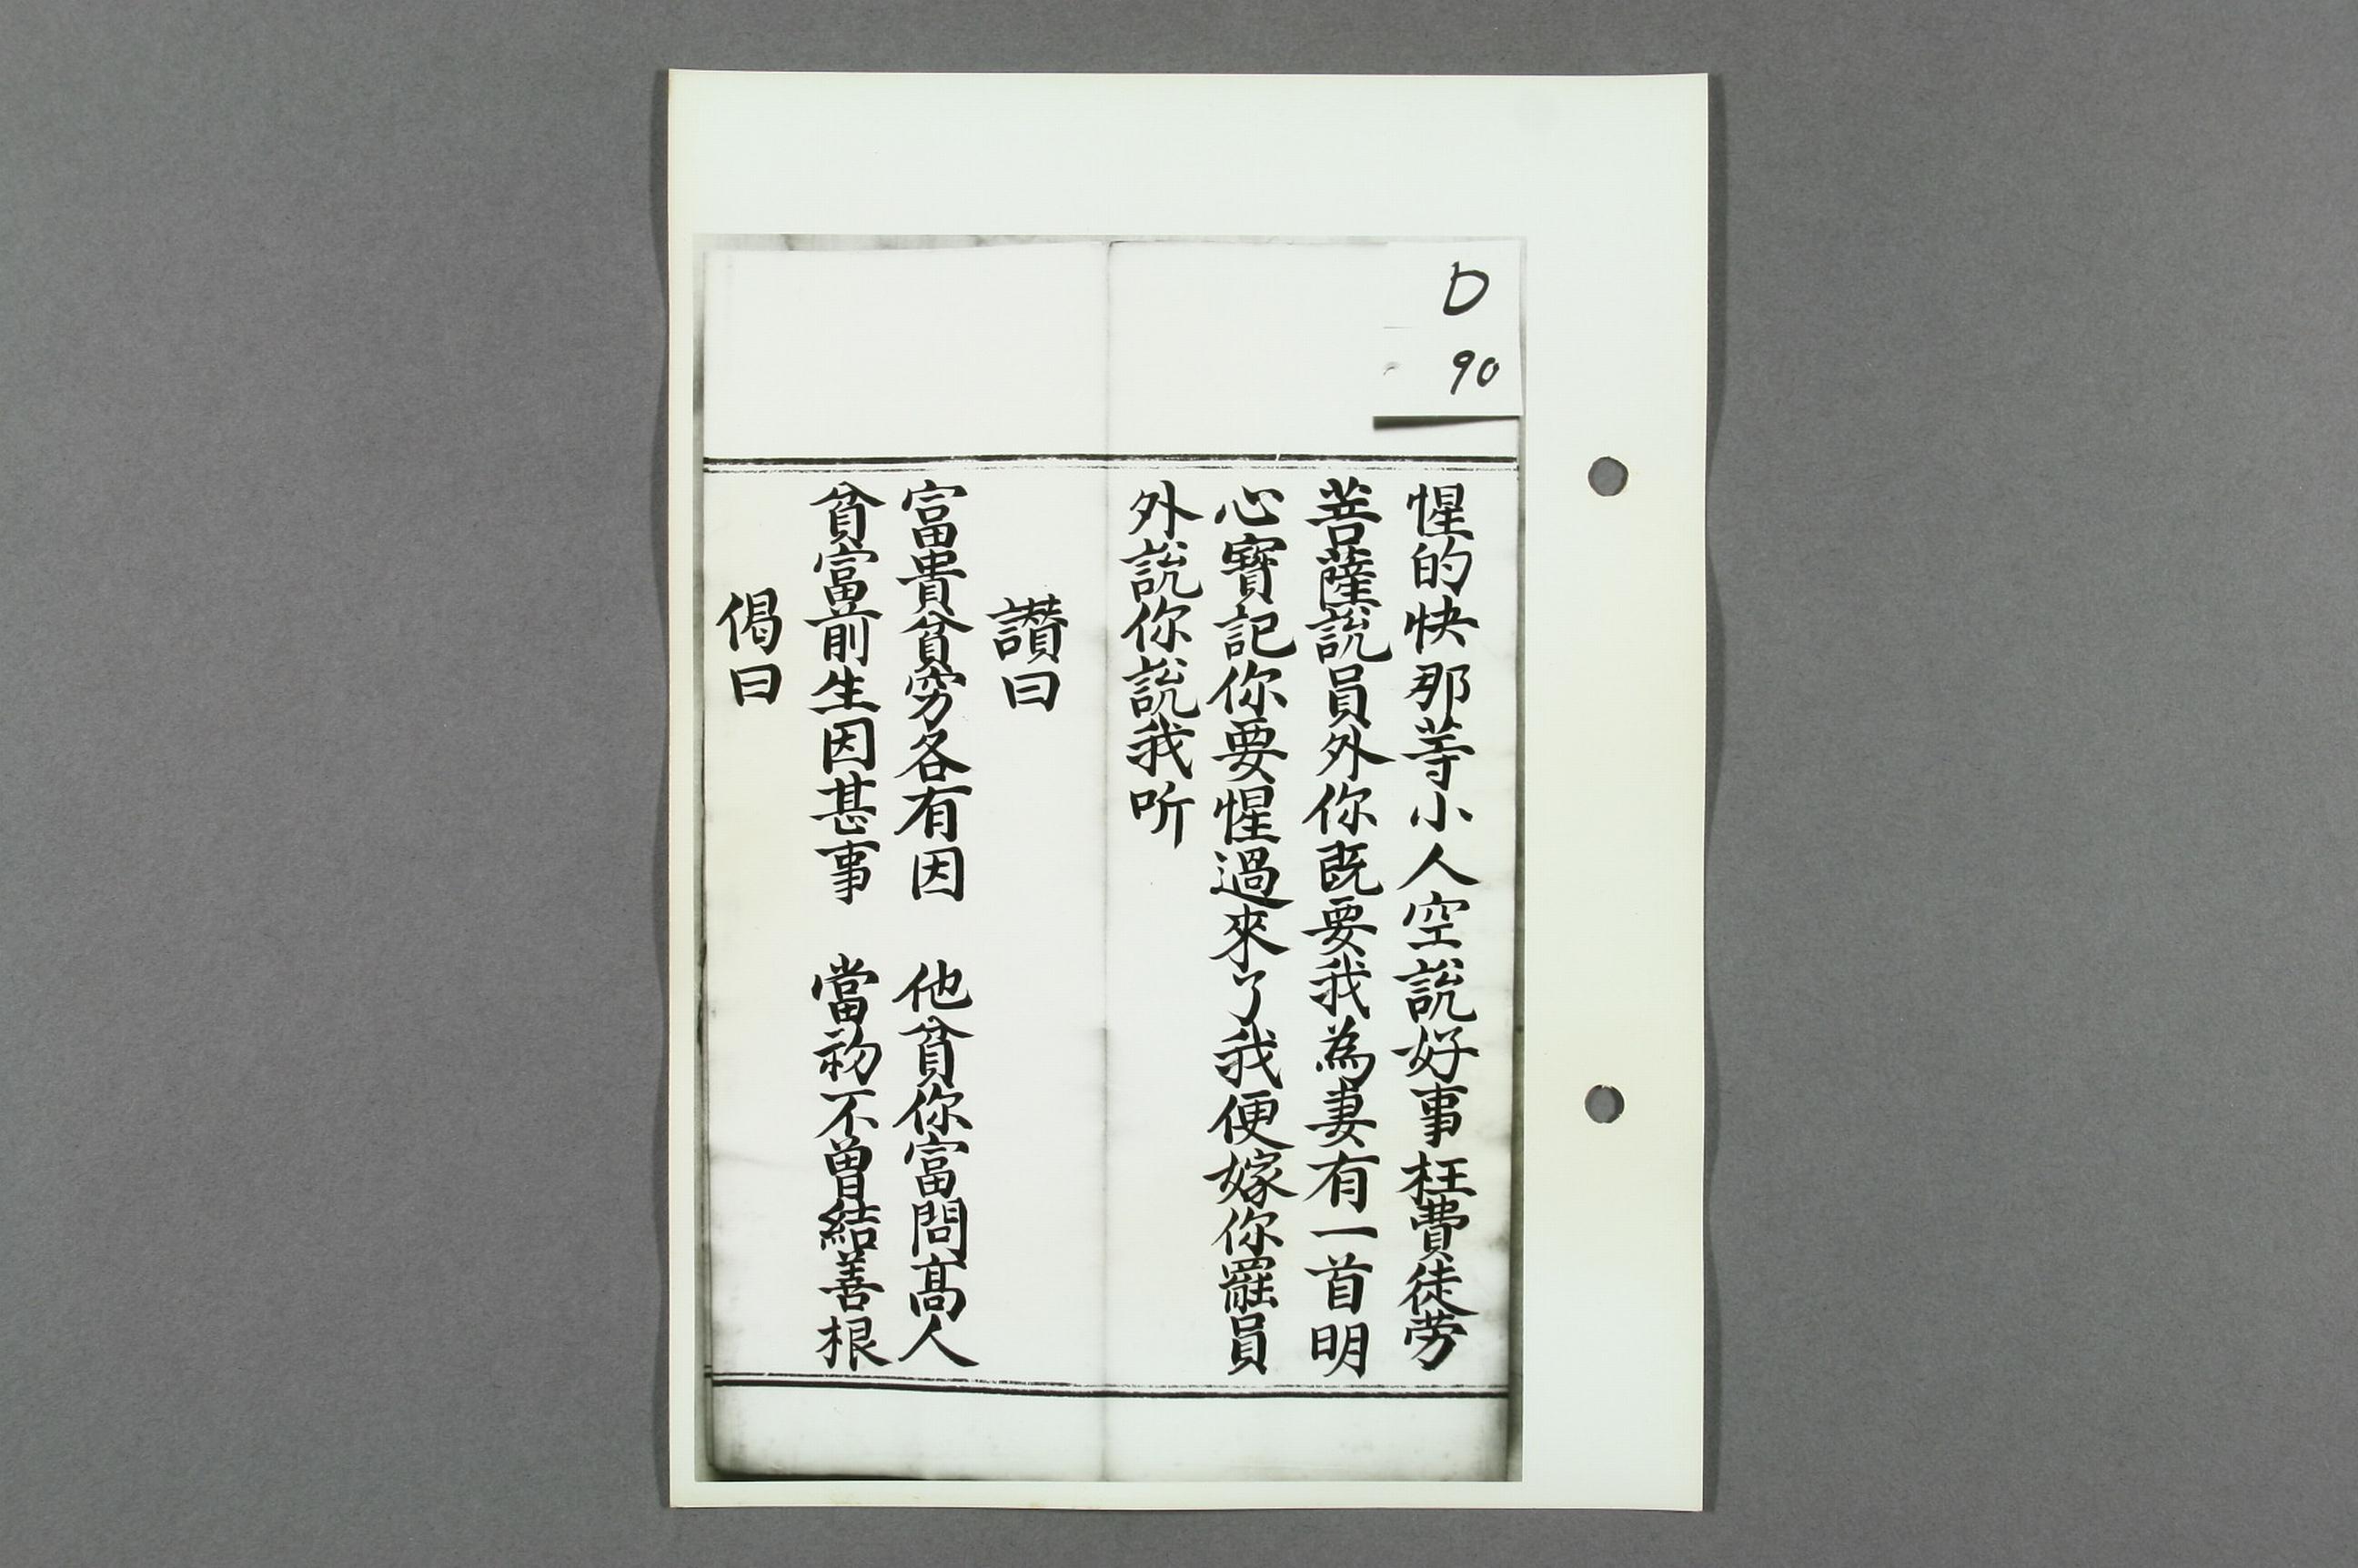 D
90
惺的快那等小人空説好事枉費徒劳
菩薩説員外你既要我為妻有一首明
心寳記你要惺過來了我便嫁你罷員
外説你説我听
讃曰
富貴貧窮各有因　他貧你富問髙人
貧富前生因甚事　當初不曽結善根
偈曰